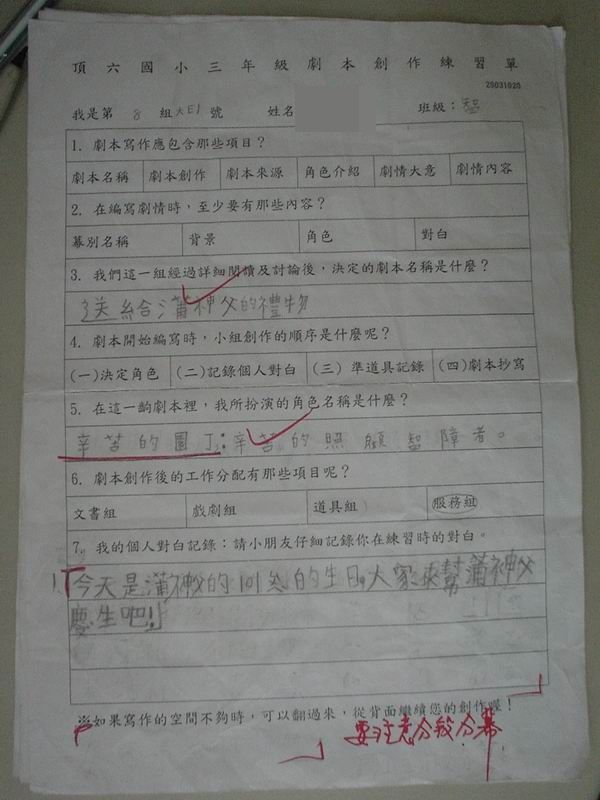 頂六國小三年級劇本創作練習單
20031020
我是第 8 組 號 姓名 班級：智
1. 劇本寫作應包含那些項目？
劇本名稱 劇本創作 劇本來源 角色介紹 劇情大意 劇情內容
2. 在編寫劇情時，至少要有那些內容？
幕別名稱 背景 角色 對白
3. 我們這一組經過詳細閱讀及討論後，決定的劇本名稱是什麼？
送給蒲神父的禮物
4. 劇本開始編寫時，小組創作的順序是什麼呢？
(一)決定角色 (二)記錄個人對白 (三) 準道具記錄 (四)劇本抄寫
5. 在這一齣劇本裡，我所扮演的角色名稱是什麼？
辛苦的園丁:辛苦的照顧智障者。
6. 劇本創作後的工作分配有那些項目呢？
文書組 戲劇組 道具組 服務組
7. 我的個人對白記錄：請小朋友仔細記錄你在練習時的對白。
1.「今天是蒲神父的101的生日,大家來幫蒲神父
慶生吧!」
※如果寫作的空間不夠時，可以翻過來，從背面繼續您的創作喔！
要注意分段分幕